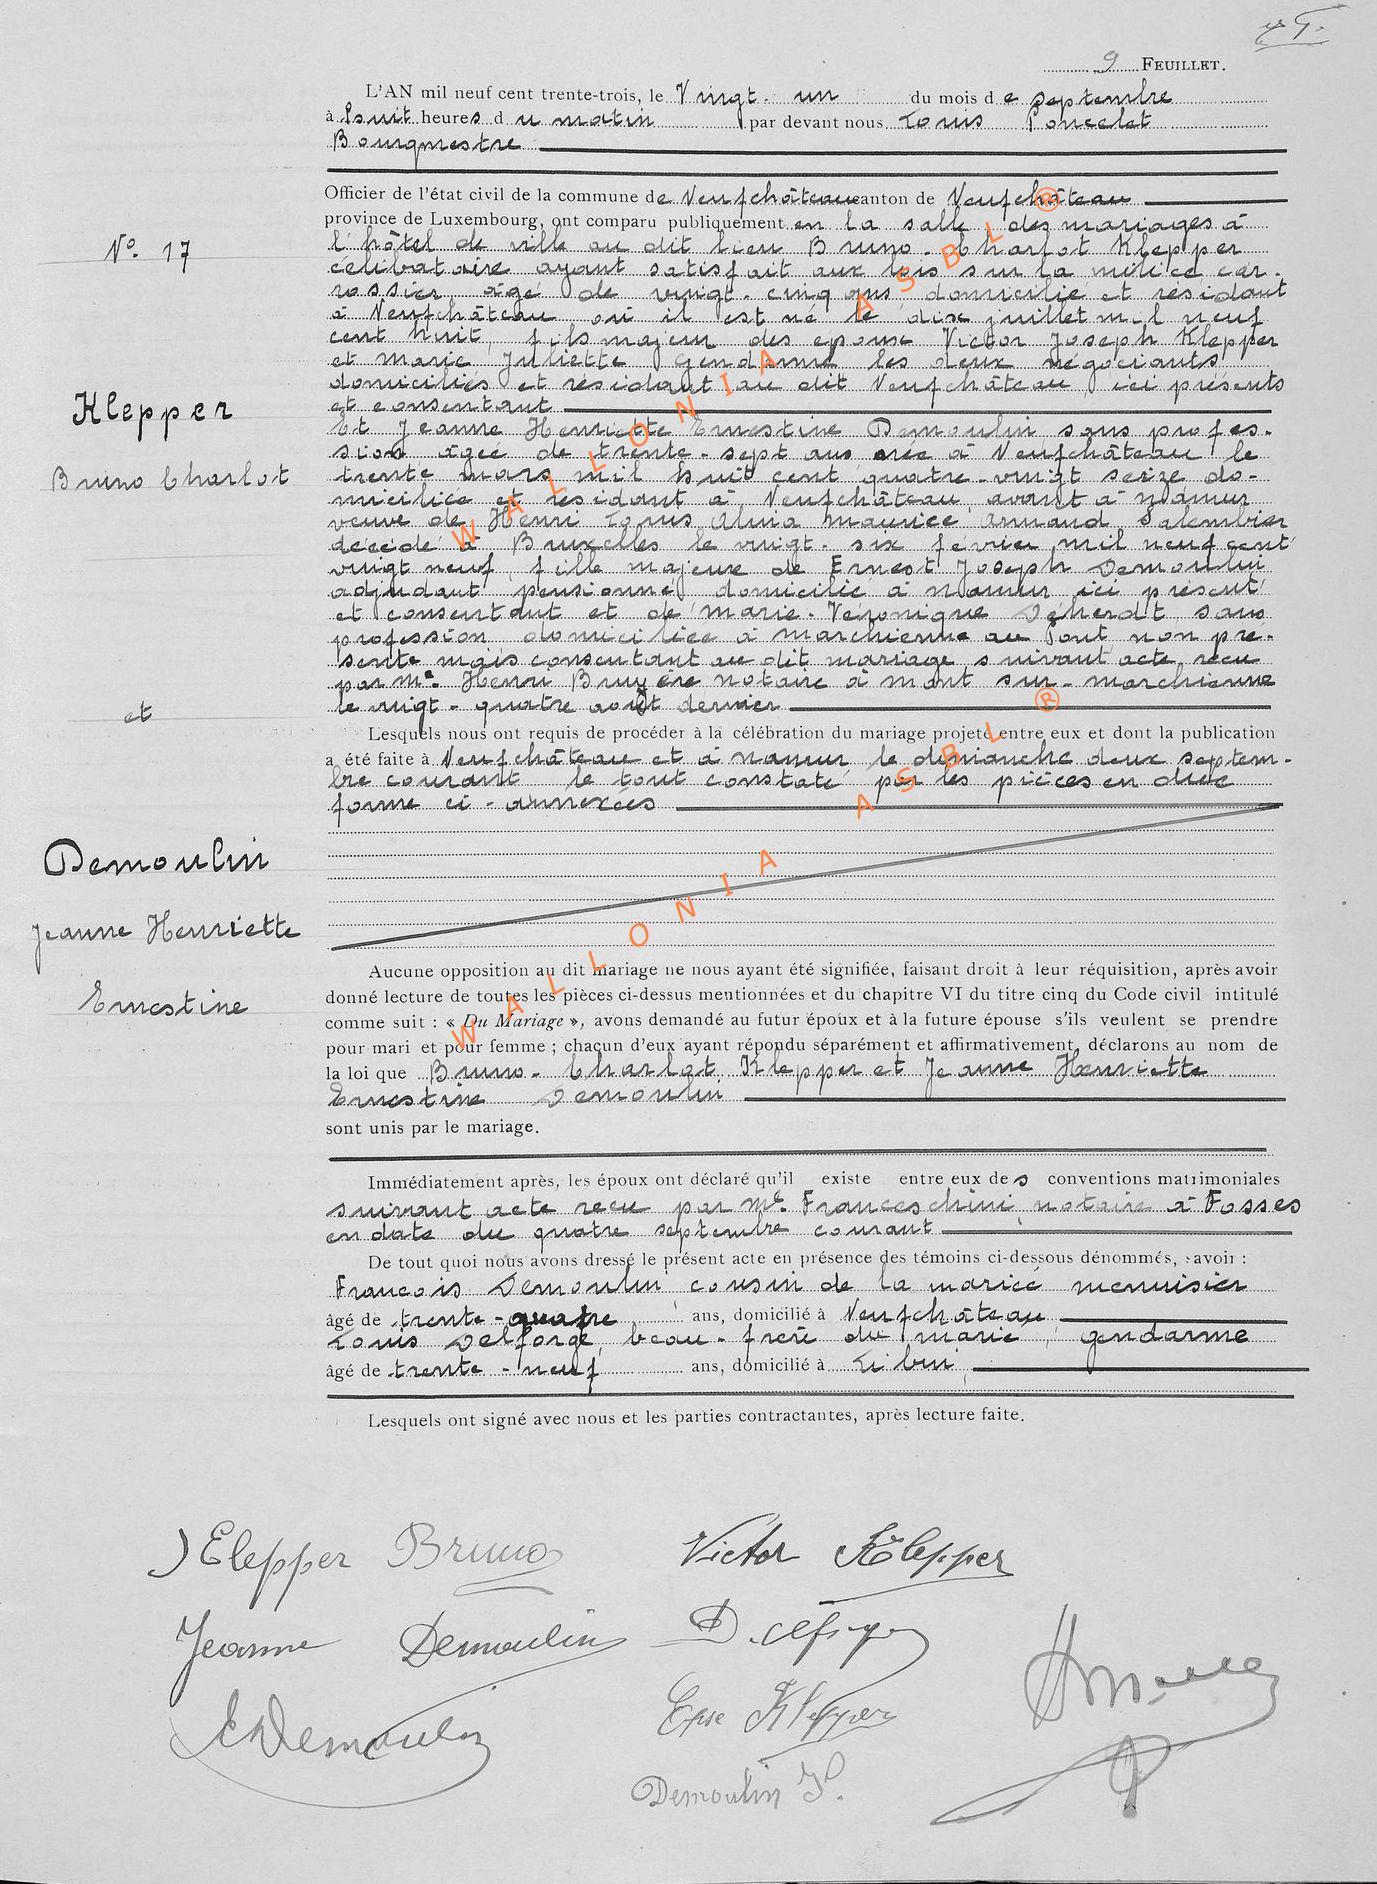 9 FEUILLET.
L'AN mil neuf cent trente-trois, le Vingt-un du mois de septembre
à huit heures du matin par devant nous Louis Poncelet
Bourgmestre
Officier de l'état civil de la commune de Neufchâteau canton de Neufchâteau
province de Luxembourg, ont comparu publiquement en la salle des mariages à
l'hôtel de ville au dit lieu Bruno-Charlot Klepper
célibataire ayant satisfait aux lois sur la milice car-
rossier âgé de vingt-cinq ans domicilié et résidant
à Neufchâteau où il est né le dix juillet mil neuf
cent huit, fils majeur des époux Victor Joseph Klepper
et Marie Juliette Gendarme les deux négociants
domiciliés et résidant au dit Neufchâteau, ici présents
et consentant
Et Jeanne Henriette Ernestine Demoulin sans profes-
sion âgée de trente-sept ans née à Neufchâteau le
trente mars mil huit cent quatre-vingt seize do-
miciliée et résidant à Neufchâteau avant à Namur
veuve de Henri Louis Maurice Armand Salembier
décédé à Bruxelles le vingt-six février mil neuf cent
vingt neuf, fille majeure de Ernest Joseph Demoulin
adjudant pensionné domicilié à Namur ici présent
et consentant et de Marie-Véronique Déherdt sans
profession domiciliée à Marchienne au Pont non pré-
sente mais consentant au dit mariage suivant acte recu
par Me Henri Bruyère notaire à Mont-sur-Marchienne
le vingt-quatre août dernier
Lesquels nous ont requis de procéder à la célébration du mariage projeté entre eux et dont la publication
a été faite à Neufchâteau et à Namur le dimanche deux septem-
bre courant le tout constaté par les pièces en due
forme ci-annexées
Aucune opposition au dit mariage ne nous ayant été signifiée, faisant droit à leur réquisition, après avoir
donné lecture de toutes les pièces ci-dessus mentionnées et du chapitre VI du titre cinq du Code civil intitulé
comme suit : « Du Mariage », avons demandé au futur époux et à la future épouse s'ils veulent se prendre
pour mari et pour femme ; chacun d'eux ayant répondu séparément et affirmativement, déclarons au nom de
la loi que Bruno-Charlot Klepper et Jeanne Henriette
Ernestine Demoulin
sont unis par le mariage.
Immédiatement après, les époux ont déclaré qu'il existe entre eux des conventions matrimoniales
suivant acte recu par Me Franceschini notaire à Fosses
en date du quatre septembre courant
De tout quoi nous avons dressé le présent acte en présence des témoins ci-dessous dénommés, savoir :
Francois Demoulin cousin de la mariée menuisier
âgé de trente-quatre ans, domicilié à Neufchâteau
Louis Delforge, beau-frère du marié, gendarme
âgé de trente-neuf ans, domicilié à Libin
Lesquels ont signé avec nous et les parties contractantes, après lecture faite.
No. 17
Klepper
Bruno Charlot
et
Demoulin
Jeanne Henriette
Ernestine
Klepper Bruno Victor Klepper
Jeanne Demoulin
EDemoulin Epse Klepper
Demoulin F.
WALLONIA ASBL ®
WALLONIA ASBL ®